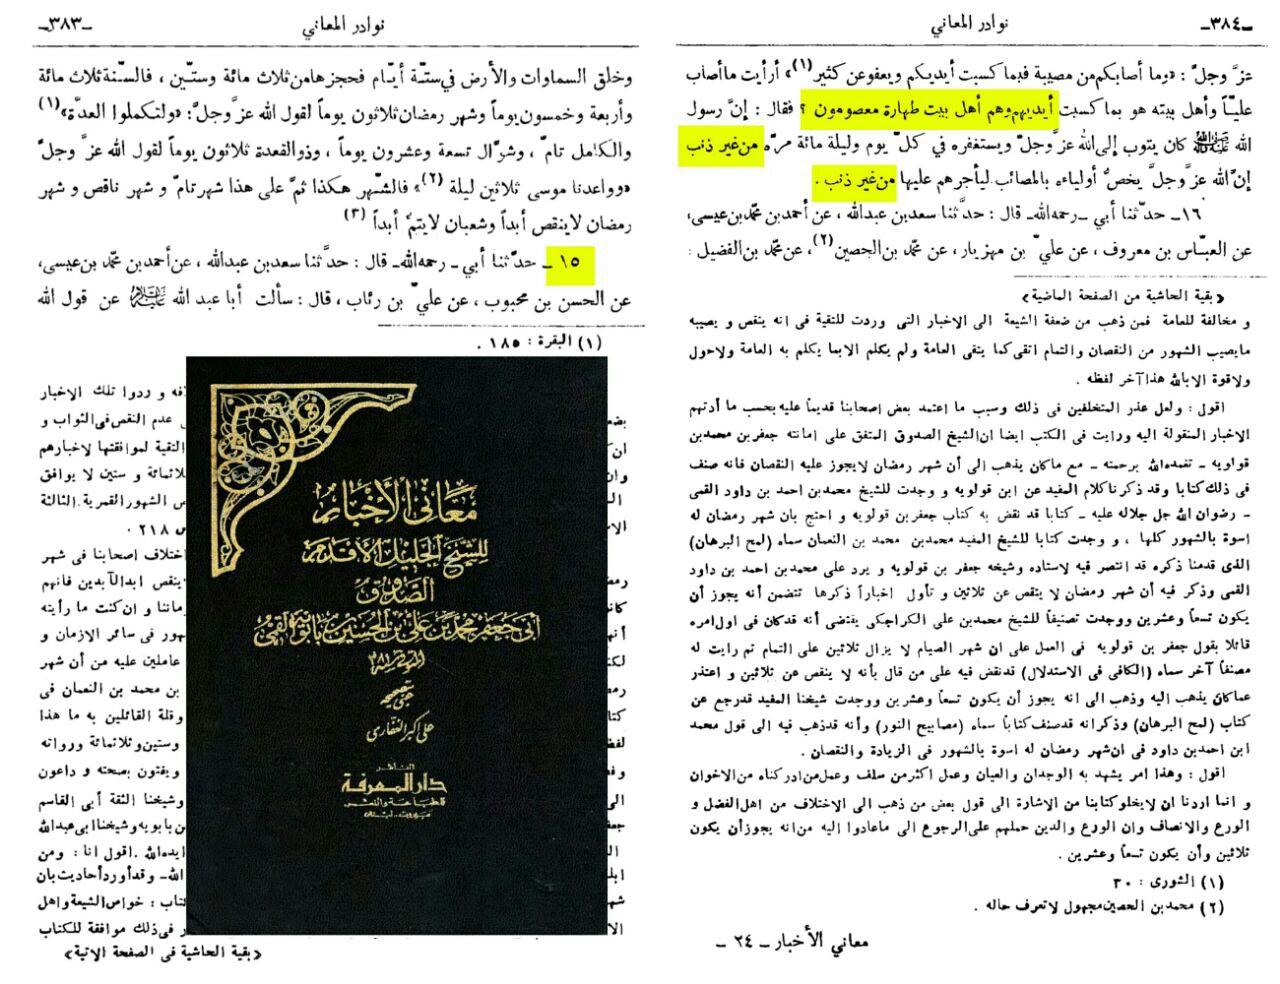 نوادر المعاني
ـ٣٨٣ـ
وخلق السماوات والأرض في ستّة أيّام فحجزها من ثلاث مائة وستّين ، فالسّنة ثلاث مائة
وأربعة وخمسون يوماً وشهر رمضان ثلاثون يوماً لقول الله عزَّ وجلَّ: «ولتكملوا العدّة» (١)
والكامل تامّ ، وشوّال تسعة وعشرون يوماً ، وذو القعدة ثلاثون يوماً لقول الله عزَّ وجلَّ
«وواعدنا موسى ثلاثين ليلة (٢)» فالشّهر هكذا ثمّ على هذا شهر تامّ و شهر ناقص و شهر
رمضان لا ينقص أبداً وشعبان لا يتمّ أبداً (٣)
١٥ ـ حدّثنا أبي ـ رحمه الله ـ قال : حدَّثنا سعد بن عبدالله ، عن أحمد بن محمّد بن عيسى،
عن الحسن بن محبوب ، عن عليّ بن رئاب ، قال : سألت أبا عبد الله عليه السلام عن قول الله
(١) البقرة : ١٨٥ .
فه و ردوا تلك الاخبار
عدم النقص فى الثواب و
التقية لموافقتها لاخبارهم
ثلاثمائة و ستين لا يوافق
الشهور القمرية . الثالثة
ص ٢١٨ .
ختلاف اصحابنا فى شهر
ينقص ابد الآبدين فانهم
زماننا و ان كنت ما رأيته
هور فى سائر الازمان و
عاملين عليه من أن شهر
بن محمد بن النعمان فى
وقلة القائلين به ما هذا
وستين وثلاثمائة ورواته
ويفتون بصحته و داعون
وشيخنا الثقة أبي القاسم
بن بابويه وشيخنا ابى عبدالله
ايده الله . اقول انا : ومن
الله ـ وقد أورد أحاديث بان
تاب : خواص الشيعة واهل
فى ذلك موافقة للكتاب
«بقية الحاشية فى الصفحة الاتية»
معاني الأخبار
للشيخ الجليل الأقدم
الصدوق
أبي جعفر محمد بن علي بن الحسين بن بابويه القمي
المتوفى ٣٨١
عني بتصحيحه
علي أكبر الغفاري
الناشر
دار المعرفة
للطباعة والنشر
بيروت ـ لبنان
ـ٣٨٤ـ
نوادر المعاني
عزَّ وجلَّ : «وما أصابكم من مصيبة فبما كسبت أيديكم ويعفو عن كثير (١)» أرأيت ما أصاب
عليّاً وأهل بيته هو بما كسبت أيديهم وهم أهل بيت طهارة معصومون ؟ فقال : إنَّ رسول
الله ﷺ كان يتوب إلى الله عزَّ وجلَّ ويستغفره في كلّ يوم وليلة مائة مرّة من غير ذنب
إنَّ الله عزَّ وجلَّ يخصُّ أولياءه بالمصائب ليأجرهم عليها من غير ذنب .
١٦ـ حدّثنا أبي ـ رحمه الله ـ قال : حدَّثنا سعد بن عبدالله ، عن أحمد بن محمّد بن عيسى،
عن العبّاس بن معروف ، عن عليّ بن مهزيار، عن محمّد بن الحصين (٢)، عن محمّد بن الفضيل :
«بقية الحاشية من الصفحة الماضية»
و مخالفة للعامة فمن ذهب من ضعفة الشيعة الى الاخبار التى وردت للتقية فى انه ينقص و يصيبه
ما يصيب الشهور من النقصان والتمام اتقى كما يتقى العامة ولم يكلم الا بما يكلم به العامة ولا حول
ولا قوة الا بالله هذا آخر لفظه .
اقول : ولعل عذر المتخلفين فى ذلك وسبب ما اعتمد بعض اصحابنا قديماً عليه بحسب ما أدتهم
الاخبار المنقولة اليه ورايت فى الكتب ايضا ان الشيخ الصدوق المتفق على امانته جعفر بن محمد بن
قواويه ـ تغمده الله برحمته ـ مع ما كان يذهب الى أن شهر رمضان لا يجوز عليه النقصان فانه صنف
فى ذلك كتابا وقد ذكرنا كلام المفيد عن ابن قولويه و وجدت للشيخ محمد بن احمد بن داود القمى
ـ رضوان الله جل جلاله عليه ـ كتابا قد نقض به كتاب جعفر بن قولويه و احتج بان شهر رمضان له
اسوة بالشهور كلها ، و وجدت كتابا للشيخ المفيد محمد بن محمد بن النعمان سماه (لمح البرهان)
الذى قدمنا ذكره قد انتصر فيه لاستاده وشيخه جعفر بن قولويه و يرد على محمد بن احمد بن داود
القمى وذكر فيه أن شهر رمضان لا ينقص عن ثلاثين و تأول اخباراً ذكرها تتضمن أنه يجوز أن
يكون تسعاً وعشرين ووجدت تصنيفاً للشيخ محمد بن على الكراجكى يقتضى أنه قد كان فى اول امره
قائلا بقول جعفر بن قولويه فى العمل على ان شهر الصيام لا يزال ثلاثين على التمام ثم رايت له
مصنفاً آخر سماه (الكافى فى الاستدلال) قد نقض فيه على من قال بأنه لا ينقص عن ثلاثين و اعتذر
عما كان يذهب اليه وذهب الى انه يجوز أن يكون تسعاً وعشرين ووجدت شيخنا المفيد قد رجع عن
كتاب (لمح البرهان) وذكر انه قد صنف كتاباً سماه (مصابيح النور) وأنه قد ذهب فيه الى قول محمد
ابن احمد بن داود فى ان شهر رمضان له اسوة بالشهور فى الزيادة والنقصان .
اقول : وهذا امر يشهد به الوجدان والعيان وعمل اكثر من سلف وعمل من ادركناه من الاخوان
و انما اردنا ان لا يخلو كتابنا من الاشارة الى قول بعض من ذهب الى الاختلاف من اهل الفضل و
الورع والانصاف وان الورع والدين حملهم على الرجوع الى ما عادوا اليه من انه يجوز أن يكون
ثلاثين وأن يكون تسعاً وعشرين .
(١) الشورى : ٣٠
(٢) محمد بن الحصين مجهول لا تعرف حاله .
معاني الأخبار ـ ٢٤ ـ